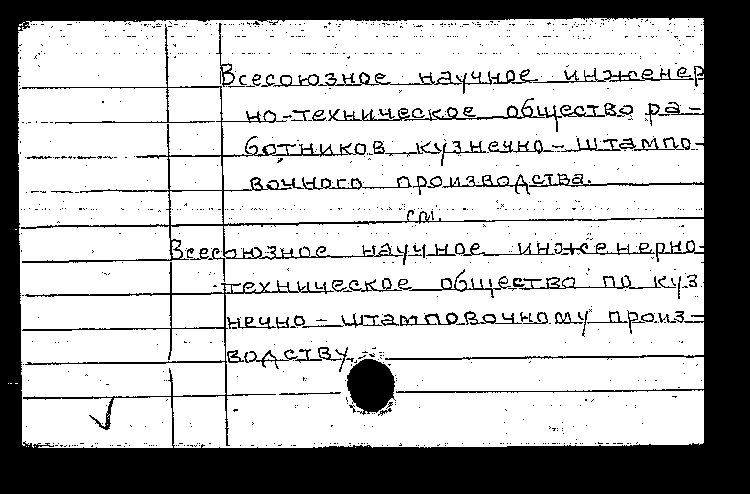 Всесоюзное научное инженер
но-техническое общество ра-
ботников кузнечно-штампо-
вочного производства.
см.
Всесоюзное научное инженерно-
-техническое общество по куз
нечно-штамповочному произ-
водству.